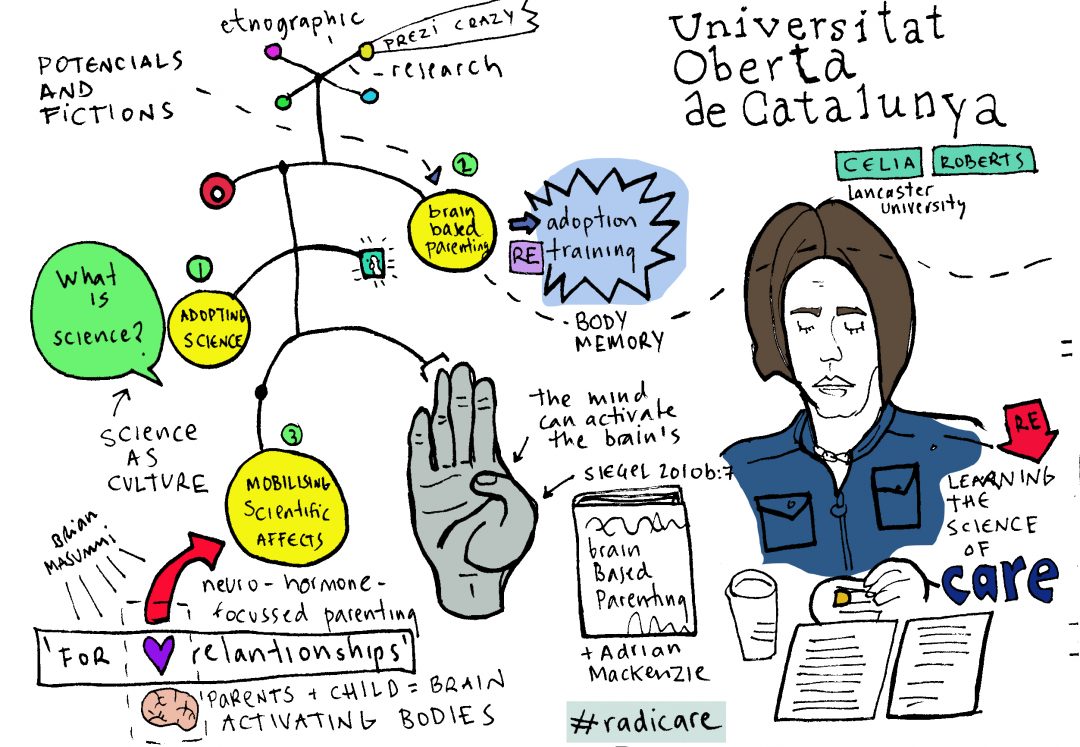 etnographic
PREZI CRAZY
research
POTENCIALS
AND
FICTIONS
Universitat
Oberta
de Catalunya
CELIA ROBERTS
Lancaster
University
2
brain
based
parenting
adoption
RE training
1
What
is
science?
ADOPTING
SCIENCE
BODY
MEMORY
SCIENCE
AS
CULTURE
the mind
can activate
the brain's
SIEGEL 2010b:7
3
MOBILISING
Scientific
AFFECTS
RE
LEARNING
THE
SCIENCE
OF
care
brain
Based
Parenting
+ Adrian
Mackenzie
Brian
MASUMMI
neuro-hormone-
focussed parenting
'FOR relantionships'
PARENTS + CHILD = BRAIN
ACTIVATING BODIES
#radicare